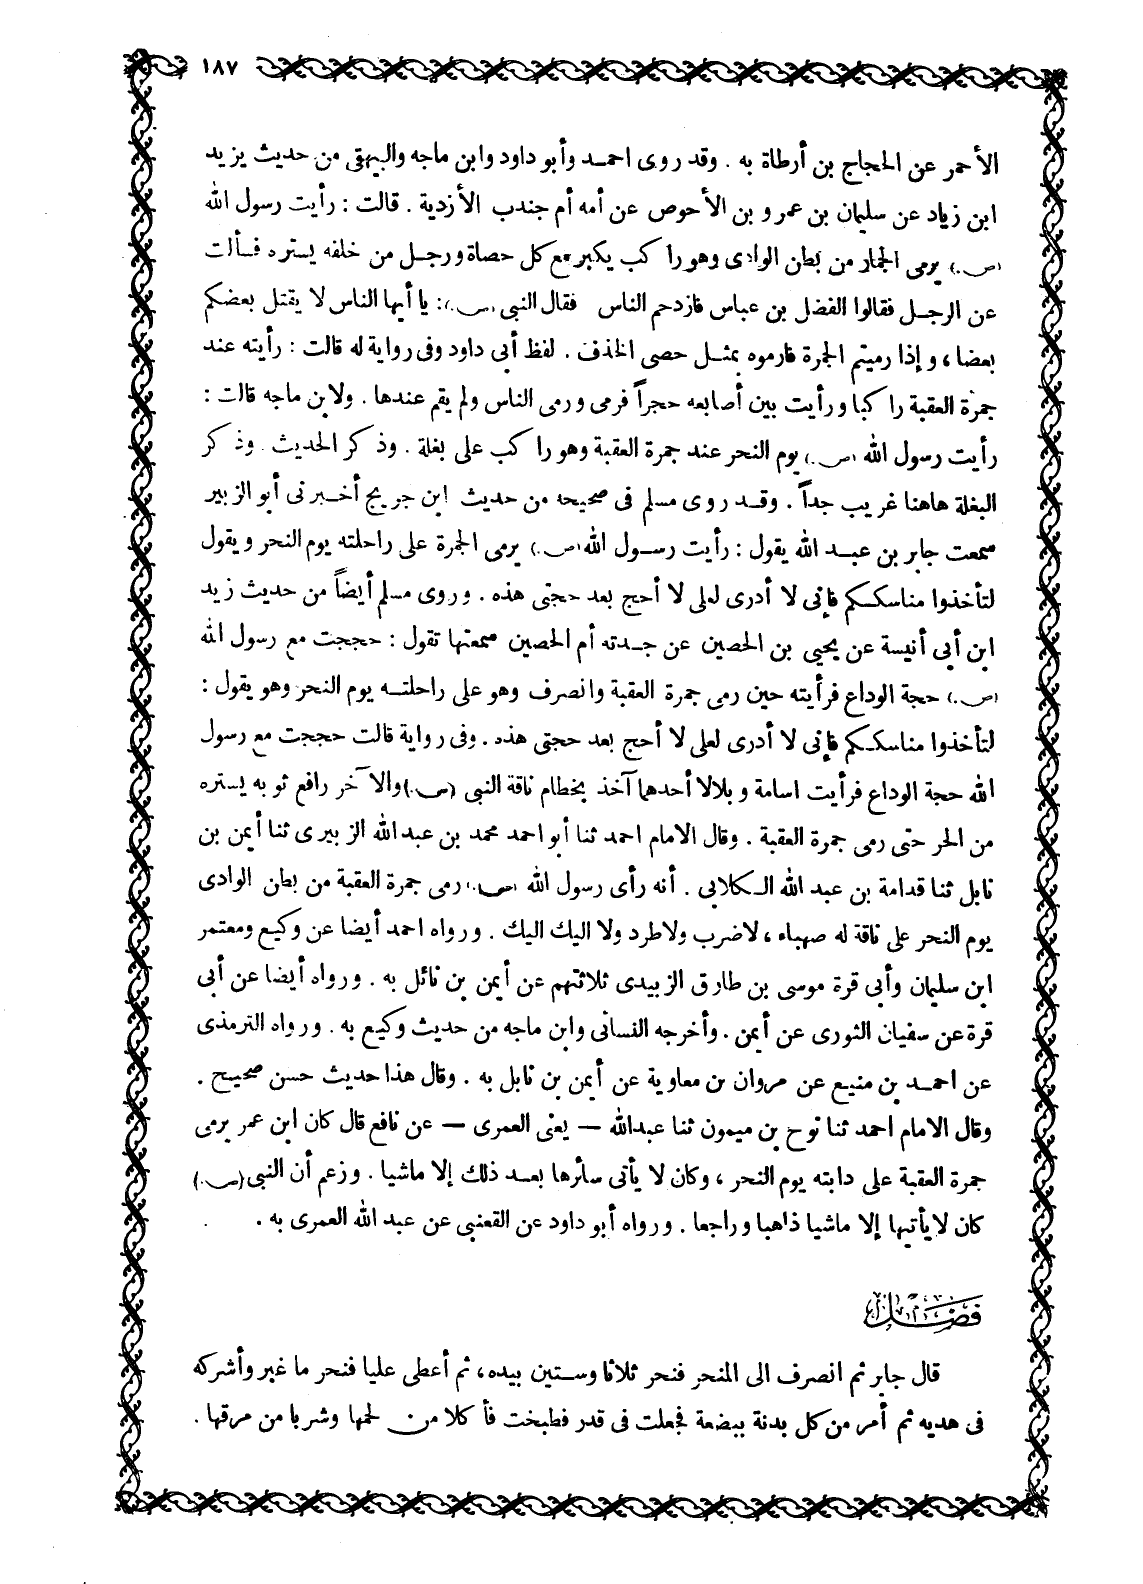 ١٨٧
الأحمر عن الحجاج بن أرطاة به . وقد روى احمد وأبو داود وابن ماجه والبيهقى من حديث يزيد
ابن زياد عن سليمان بن عمرو بن الأحوص عن أمه أم جندب الأزدية . قالت : رأيت رسول الله
(ص.) يرمى الجمار من بطن الوادى وهو را كب يكبر مع كل حصاة ورجل من خلفه يستره فسألت
عن الرجل فقالوا الفضل بن عباس فازدحم الناس فقال النبى (ص.): يا أيها الناس لا يقتل بعضكم
بعضا ، وإذا رميتم الجمرة فارموه بمثل حصى الخذف . لفظ أبى داود وفى رواية له قالت : رأيته عند
جمرة العقبة را كبا ورأيت بين أصابعه حجراً فرمى ورمى الناس ولم يقم عندها . ولابن ماجه قالت :
رأيت رسول الله (ص.) يوم النحر عند جمرة العقبة وهو را كب على بغلة . وذ كر الحديث . وذ كر
البغلة هاهنا غريب جداً . وقد روى مسلم فى صحيحه من حديث ابن جريج أخبرنى أبو الزبير
سمعت جابر بن عبد الله يقول : رأيت رسول الله (ص.) يرمى الجمرة على راحلته يوم النحر ويقول
لتأخذوا مناسككم فإنى لا أدرى لعلى لا أحج بعد حجتى هذه . وروى مسلم أيضاً من حديث زيد
ابن أبى أنيسة عن يحيى بن الحصين عن جدته أم الحصين سمعتها تقول : حججت مع رسول الله
(ص.) حجة الوداع فرأيته حين رمى جمرة العقبة وانصرف وهو على راحلته يوم النحر وهو يقول :
لتأخذوا مناسككم فإنى لا أدرى لعلى لا أحج بعد حجتى هذه . وفى رواية قالت حججت مع رسول
الله حجة الوداع فرأيت اسامة وبلالا أحدهما آخذ بخطام ناقة النبى (ص.) والآخر رافع ثوبه يستره
من الحر حتى رمى جمرة العقبة . وقال الامام احمد ثنا أبو احمد محمد بن عبد الله الزبيرى ثنا أيمن بن
نابل ثنا قدامة بن عبد الله الكلابى . أنه رأى رسول الله (ص.) رمى جمرة العقبة من بطن الوادى
يوم النحر على ناقة له صهباء ، لاضرب ولاطرد ولا اليك اليك . ورواه احمد أيضا عن وكيع ومعتمر
ابن سليمان وأبى قرة موسى بن طارق الزبيدى ثلاثتهم عن أيمن بن نائل به . ورواه أيضا عن أبى
قرة عن سفيان الثورى عن أيمن . وأخرجه النسائى وابن ماجه من حديث وكيع به . ورواه الترمذى
عن احمد بن منيع عن مروان بن معاوية عن أيمن بن نابل به . وقال هذا حديث حسن صحيح .
وقال الامام احمد ثنا نوح بن ميمون ثنا عبدالله – يعنى العمرى – عن نافع قال كان ابن عمر يرمى
جمرة العقبة على دابته يوم النحر ، وكان لا يأتى سائرها بعد ذلك إلا ماشيا . وزعم أن النبى (ص.)
كان لايأتيها إلا ماشيا ذاهبا وراجعا . ورواه أبو داود عن القعنبى عن عبد الله العمرى به .
فصل
قال جابر ثم انصرف الى المنحر فنحر ثلاثا وستين بيده ، ثم أعطى عليا فنحر ما غبر وأشركه
فى هديه ثم أمر من كل بدنة ببضعة فجعلت فى قدر فطبخت فأ كلا من لحمها وشربا من مرقها .